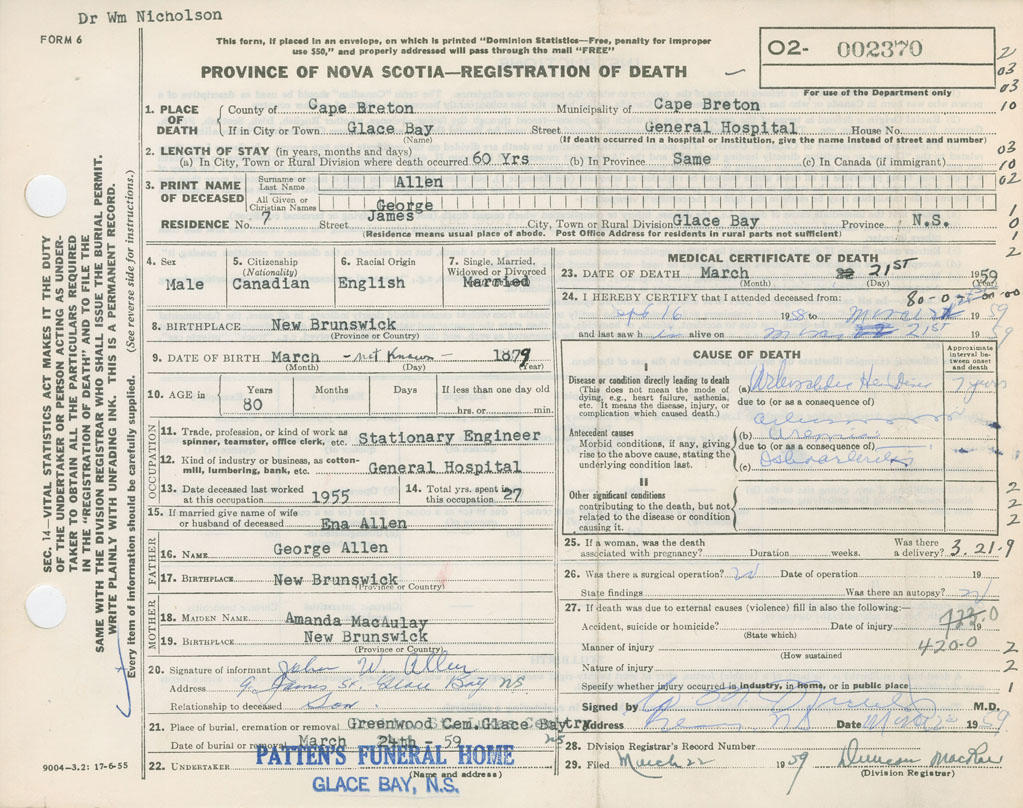 Dr Wm Nicholson
FORM 6
This form, if placed in an envelope, on which is printed "Dominion Statistics—Free, penalty for improper
use $50," and properly addressed will pass through the mail "FREE"
PROVINCE OF NOVA SCOTIA—REGISTRATION OF DEATH
O2- 002370
For use of the Department only
2
03
03
10
03
10
02
1
0
1
2
SEC. 14—VITAL STATISTICS ACT MAKES IT THE DUTY
OF THE UNDERTAKER OR PERSON ACTING AS UNDER-
TAKER TO OBTAIN ALL THE PARTICULARS REQUIRED
IN THE "REGISTRATION OF DEATH" AND TO FILE THE
SAME WITH THE DIVISION REGISTRAR WHO SHALL ISSUE THE BURIAL PERMIT.
WRITE PLAINLY WITH UNFADING INK. THIS IS A PERMANENT RECORD.
Every item of information should be carefully supplied. (See reverse side for instructions.)
1. PLACE OF DEATH County of Cape Breton Municipality of Cape Breton
If in City or Town Glace Bay Street General Hospital House No.
(Name) (If death occurred in a hospital or institution, give the name instead of street and number)
2. LENGTH OF STAY (in years, months and days)
(a) In City, Town or Rural Division where death occurred 60 Yrs (b) In Province Same (c) In Canada (if immigrant)
3. PRINT NAME OF DECEASED Surname or Last Name Allen
All Given or Christian Names George
RESIDENCE No. 7 Street James City, Town or Rural Division Glace Bay Province N.S.
(Residence means usual place of abode. Post Office Address for residents in rural parts not sufficient)
4. Sex
Male
5. Citizenship
(Nationality)
Canadian
6. Racial Origin
English
7. Single, Married,
Widowed or Divorced
Married
8. BIRTHPLACE New Brunswick
(Province or Country)
9. DATE OF BIRTH March - not Known - 1879
(Month) (Day) (Year)
10. AGE in Years Months Days If less than one day old
80 hrs. or min.
OCCUPATION
11. Trade, profession, or kind of work as
spinner, teamster, office clerk, etc. Stationary Engineer
12. Kind of industry or business, as cotton-
mill, lumbering, bank, etc. General Hospital
13. Date deceased last worked
at this occupation 1955
14. Total yrs. spent in
this occupation 27
15. If married give name of wife
or husband of deceased Ena Allen
FATHER
16. NAME George Allen
17. BIRTHPLACE New Brunswick
(Province or Country)
MOTHER
18. MAIDEN NAME Amanda MacAulay
19. BIRTHPLACE New Brunswick
(Province or Country)
20. Signature of informant John W. Allen
Address 9 James St. Glace Bay NS
Relationship to deceased Son.
21. Place of burial, cremation or removal Greenwood Cem. Glace Bay
Date of burial or removal March 24th - 59
22. UNDERTAKER PATTEN'S FUNERAL HOME
(Name and address)
GLACE BAY, N.S.
9004—3.2: 17-6-55
MEDICAL CERTIFICATE OF DEATH
23. DATE OF DEATH March 21ST 1959
(Month) (Day) (Year)
24. I HEREBY CERTIFY that I attended deceased from: 80-0
Sept 16 1958 to March 21 1959
and last saw h im alive on 21ST 1959
CAUSE OF DEATH
Approximate
interval be-
tween onset
and death
I
Disease or condition directly leading to death
(This does not mean the mode of
dying, e.g., heart failure, asthenia,
etc. It means the disease, injury, or
complication which caused death.)
(a) 7 years
due to (or as a consequence of)
Antecedent causes
Morbid conditions, if any, giving
rise to the above cause, stating the
underlying condition last.
(b) Uremia
due to (or as a consequence of)
(c) Osteoarthritis
II
Other significant conditions
contributing to the death, but not
related to the disease or condition
causing it.
2
2
2
25. If a woman, was the death
associated with pregnancy? Duration weeks.
Was there
a delivery? 3.21-9
26. Was there a surgical operation? Date of operation 19
State findings Was there an autopsy?
27. If death was due to external causes (violence) fill in also the following:—
Accident, suicide or homicide? Date of injury 19
(State which)
Manner of injury 420-0 2
(How sustained
Nature of injury 2
Specify whether injury occurred in industry, in home, or in public place 1
Signed by M.D.
Address NS Date 1959
28. Division Registrar's Record Number
29. Filed March 22 1959 Duncan MacRae
(Division Registrar)